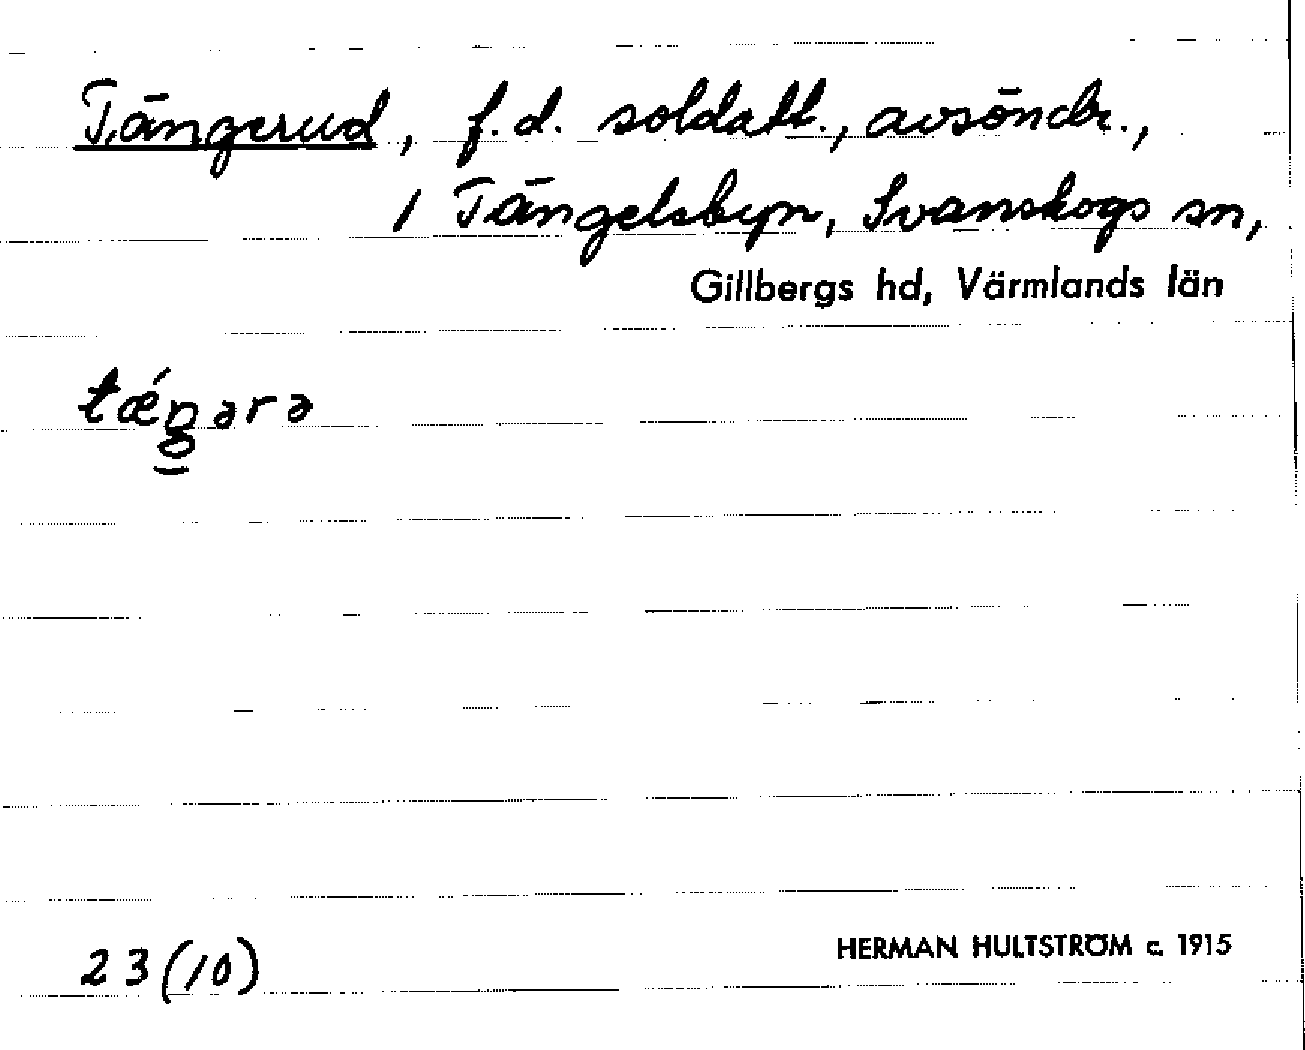 Tängerud, f.d. soldatt., avsöndr.,
1 Tängelsbyn, Svanskogs sn,
Gillbergs hd, Värmlands län
tǽŋərə
23(10)
HERMAN HULTSTRÖM c. 1915